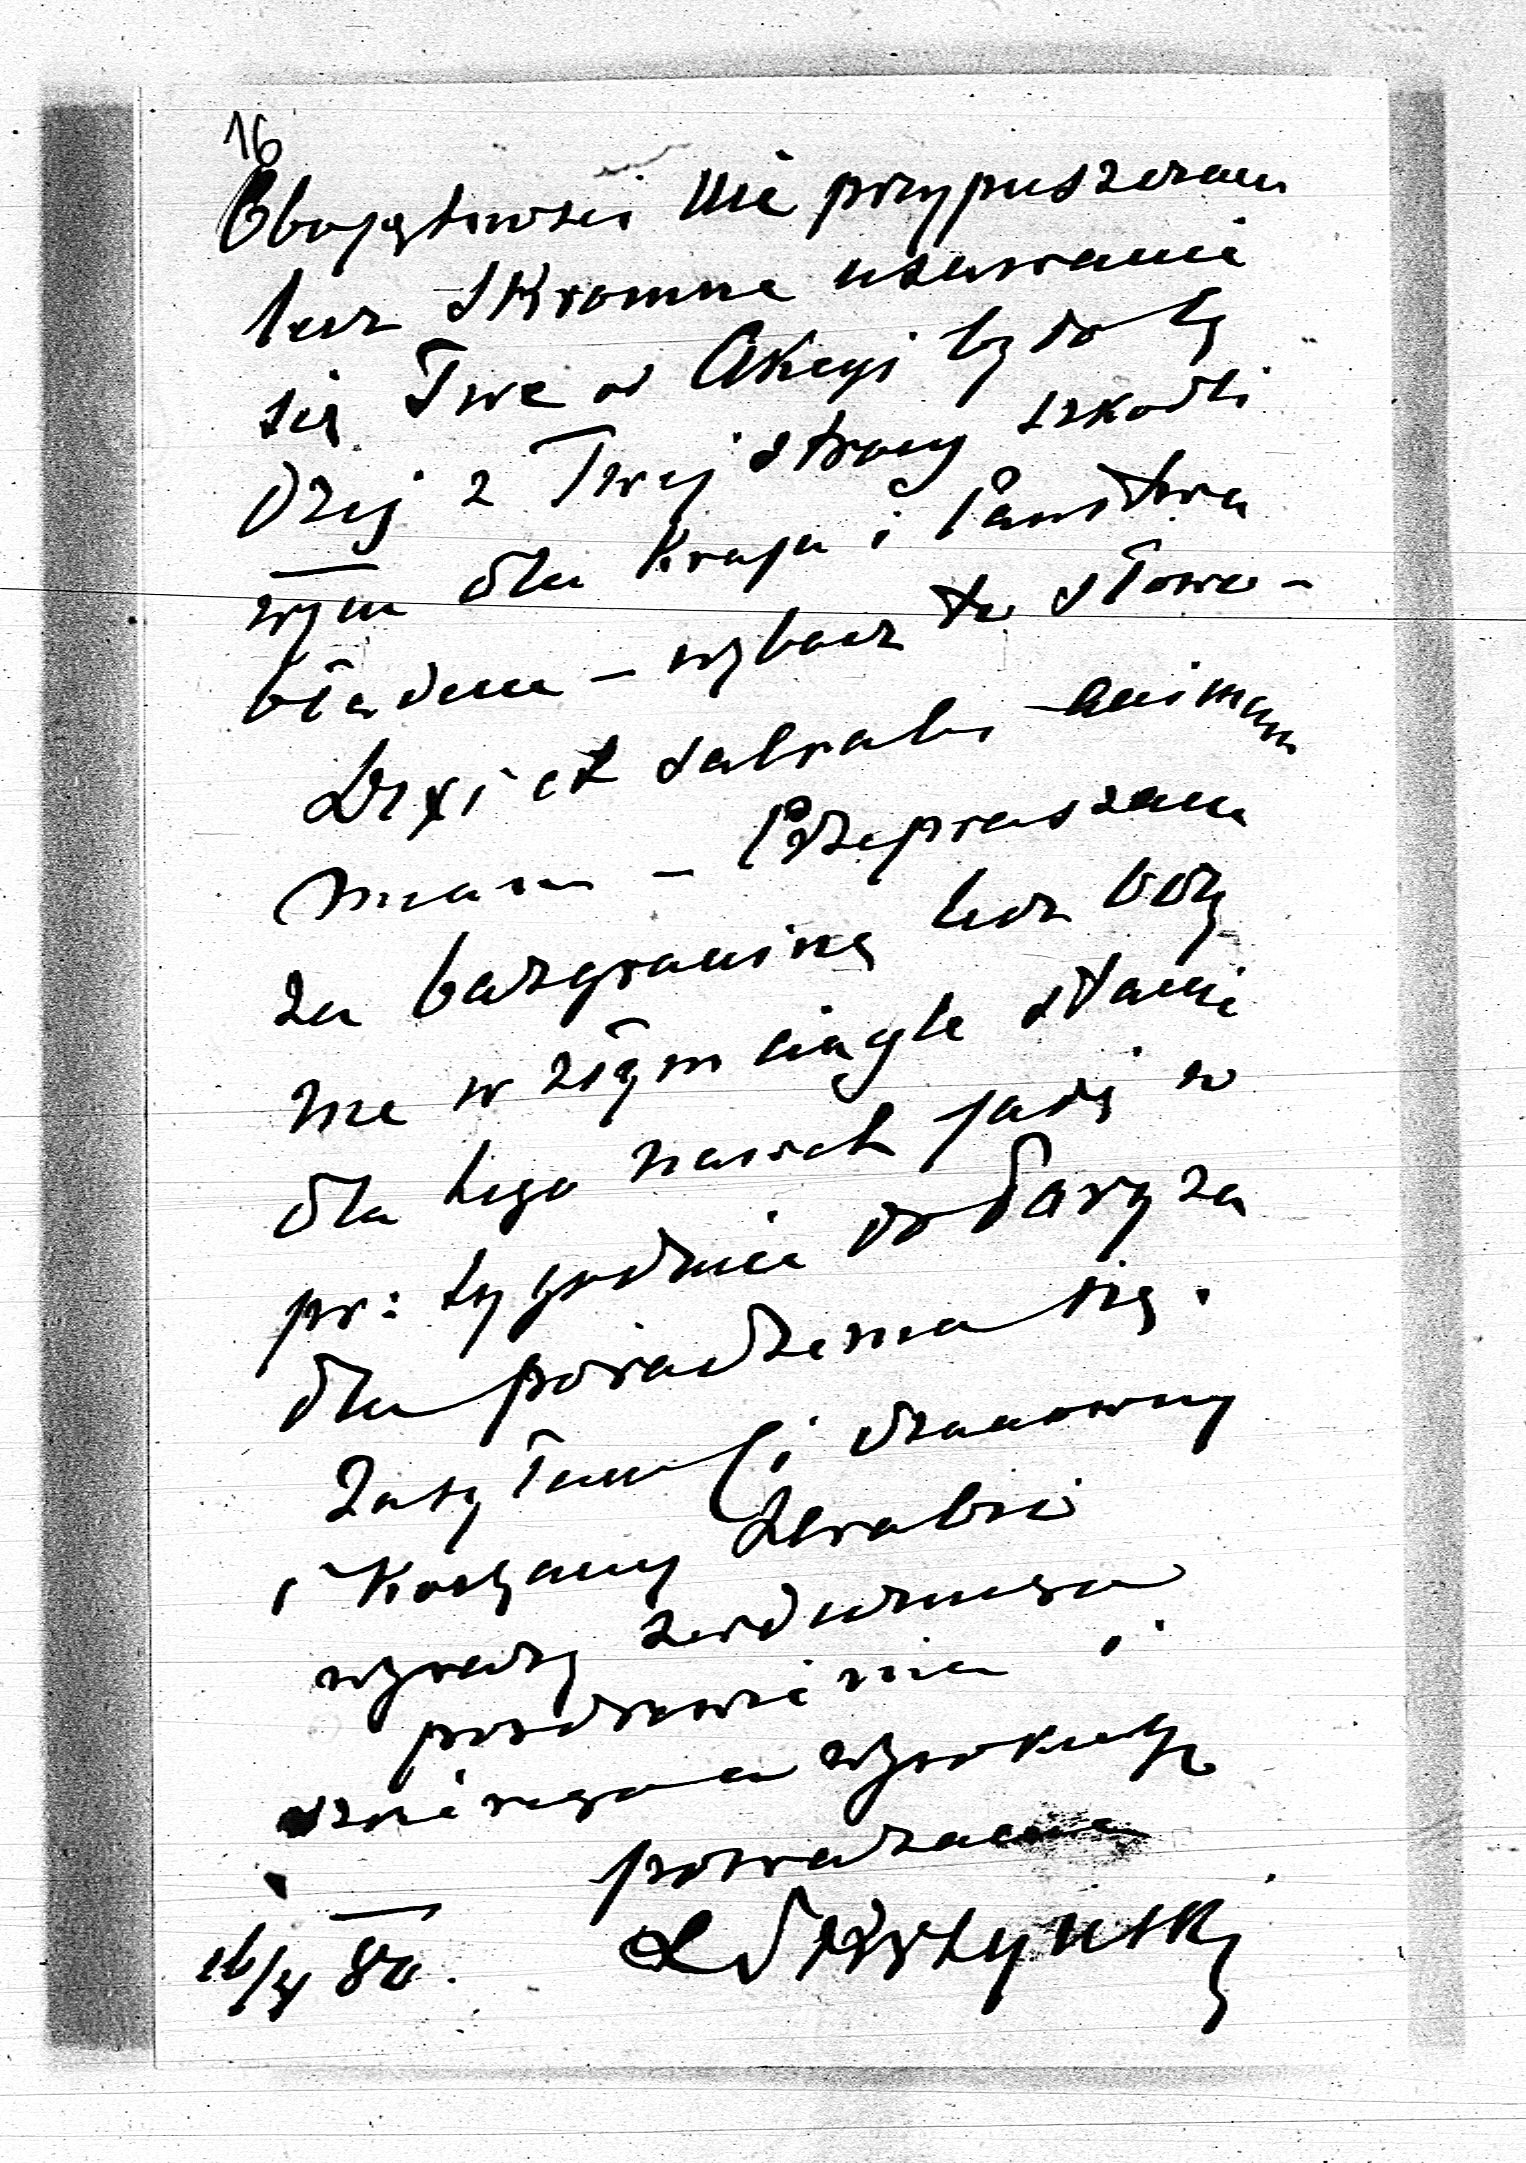 16
Obojętności nie przypuszczam
lecz skromne usuwanie
się Twe od Akcyi byłoby
dziś z Twej strony szkodli
wym dla Kraju i Państwa
błędem – wybacz te słowa –
Dixi et salvabi animam
meam – Przepraszam
za bazgraninę lecz oczy
me w złym ciągle stanie
dla tego nawet jadę w
pr: tygodniu do Paryża
dla poradzenia się.
Zasyłam Ci szanowny
i Kochany Hrabio
wyrazy serdecznego
pozdrowienia i
szczerego a wysokiego
poważania
L Skrzyński
16/XI 80.